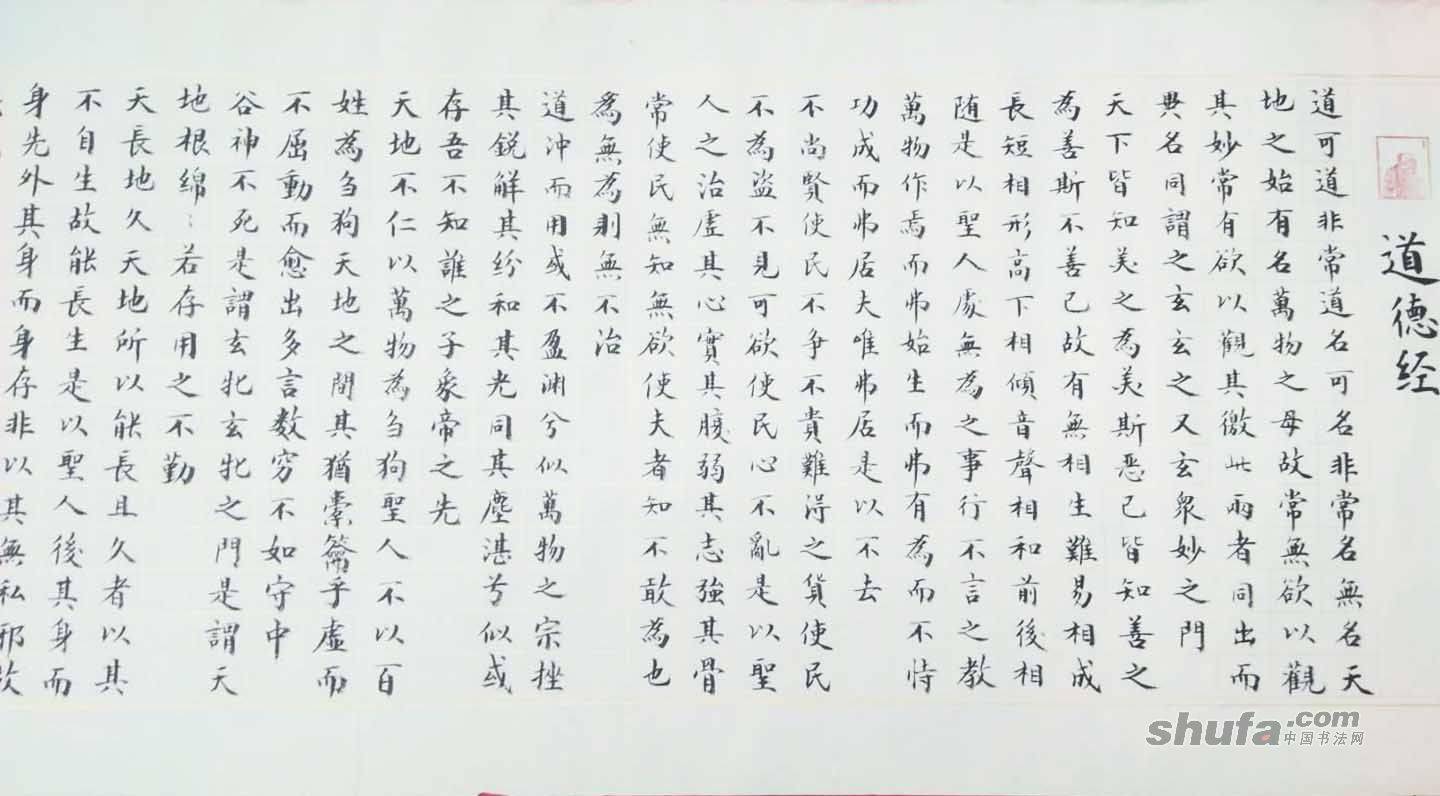 道德经
道可道非常道名可名非常名無名天
地之始有名萬物之母故常無欲以觀
其妙常有欲以觀其徼此兩者同出而
異名同謂之玄玄之又玄衆妙之門
天下皆知美之為美斯恶已皆知善之
為善斯不善已故有無相生難易相成
長短相形高下相傾音聲相和前後相
随是以聖人處無為之事行不言之教
萬物作焉而弗始生而弗有為而不恃
功成而弗居夫唯弗居是以不去
不尚賢使民不争不貴難得之貨使民
不為盗不見可欲使民心不亂是以聖
人之治虛其心實其腹弱其志強其骨
常使民無知無欲使夫者知不敢為也
爲無為則無不治
道沖而用或不盈渊兮似萬物之宗挫
其鋭解其纷和其光同其塵湛兮似或
存吾不知誰之子象帝之先
天地不仁以萬物為刍狗聖人不以百
姓為刍狗天地之間其猶橐籥乎虛而
不屈動而愈出多言数穷不如守中
谷神不死是謂玄牝玄牝之門是謂天
地根绵:若存用之不勤
天長地久天地所以能長且久者以其
不自生故能長生是以聖人後其身而
身先外其身而身存非以其無私邪故
shufa.com
中国书法网